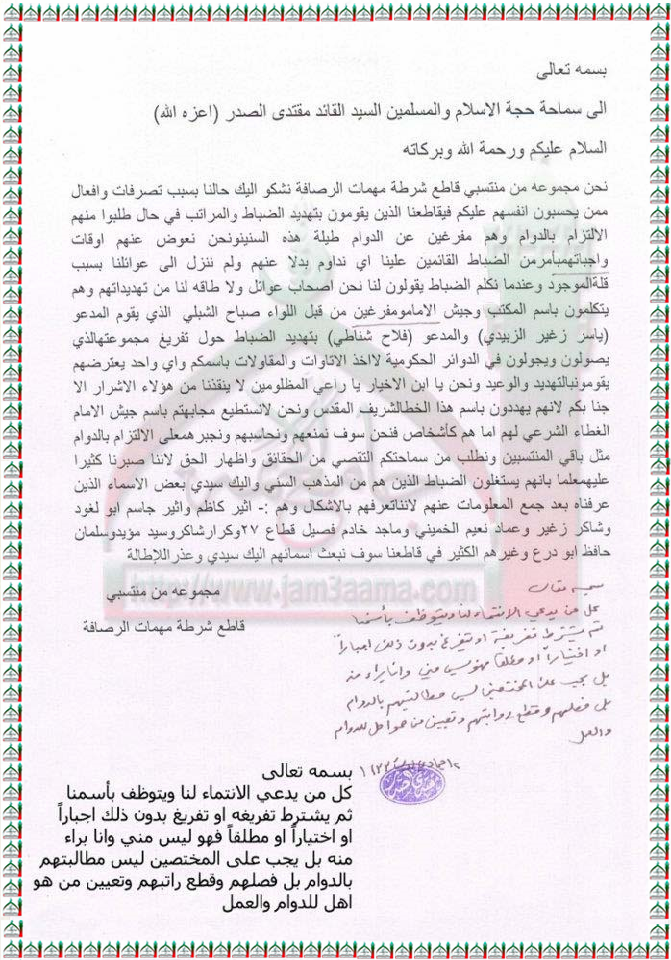 بسمه تعالى
الى سماحة حجة الاسلام والمسلمين السيد القائد مقتدى الصدر (اعزه الله)
السلام عليكم ورحمة الله وبركاته
نحن مجموعه من منتسبي قاطع شرطة مهمات الرصافة نشكو اليك حالنا بسبب تصرفات وافعال
ممن يحسبون انفسهم عليكم فيقاطعنا الذين يقومون بتهديد الضباط والمراتب في حال طلبوا منهم
الالتزام بالدوام وهم مفرغين عن الدوام طيلة هذه السنينونحن نعوض عنهم اوقات
واجباتهمبأمرمن الضباط القائمين علينا اي نداوم بدلا عنهم ولم ننزل الى عوائلنا بسبب
قلةالموجود وعندما نكلم الضباط يقولون لنا نحن اصحاب عوائل ولا طاقه لنا من تهديداتهم وهم
يتكلمون باسم المكتب وجيش الامامومفرغين من قبل اللواء صباح الشبلي الذي يقوم المدعو
(ياسر زغير الزبيدي) والمدعو (فلاح شناطي) بتهديد الضباط حول تفريغ مجموعتهالذي
يصولون ويجولون في الدوائر الحكومية لاخذ الاتاوات والمقاولات باسمكم واي واحد يعترضهم
يقومونبالتهديد والوعيد ونحن يا ابن الاخيار يا راعي المظلومين لا ينقذنا من هولاء الاشرار الا
جنا بكم لانهم يهددون باسم هذا الخطالشريف المقدس ونحن لانستطيع مجابهتم باسم جيش الامام
الغطاء الشرعي لهم اما هم كأشخاص فنحن سوف نمنعهم ونحاسبهم ونجبرهمعلى الالتزام بالدوام
مثل باقي المنتسبين ونطلب من سماحتكم التتقصي من الحقائق واظهار الحق لاننا صبرنا كثيرا
عليهمعلما بانهم يستغلون الضباط الذين هم من المذهب السني واليك سيدي بعض الاسماء الذين
عرفناه بعد جمع المعلومات عنهم لانناتعرفهم بالاشكال وهم :- اثير كاظم واثير جاسم ابو لغود
وشاكر زغير وعماد نعيم الخميني وماجد خادم فصيل قطاع ٢٧وكرارشاكروسيد مؤيدوسلمان
حافظ ابو درع وغيرهم الكثير في قاطعنا سوف نبعث اسمائهم اليك سيدي وعذرللاطالة
مجموعه من منتسبي
قاطع شرطة مهمات الرصافة
http://www.jam3aama.com
بسمه تعالى
كل من يدعي الانتماء لنا ويتوظف بأسمنا
ثم يشترط تفريغه او تفريغ بدون ذلك اجباراً
او اختياراً او مطلقاً فهو ليس مني وانا براء منه
بل يجب على المختصين ليس مطالبتهم بالدوام
بل فصلهم وقطع رواتبهم وتعيين من هو اهل للدوام
والعمل
بسمه تعالى
كل من يدعي الانتماء لنا ويتوظف بأسمنا
ثم يشترط تفريغه او تفريغ بدون ذلك اجباراً
او اختباراً او مطلقاً فهو ليس مني وانا براء
منه بل يجب على المختصين ليس مطالبتهم
بالدوام بل فصلهم وقطع راتبهم وتعيين من هو
اهل للدوام والعمل